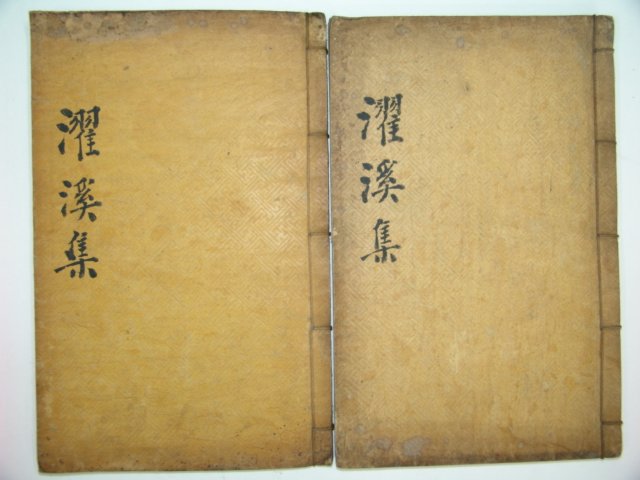 濯溪集
濯溪集